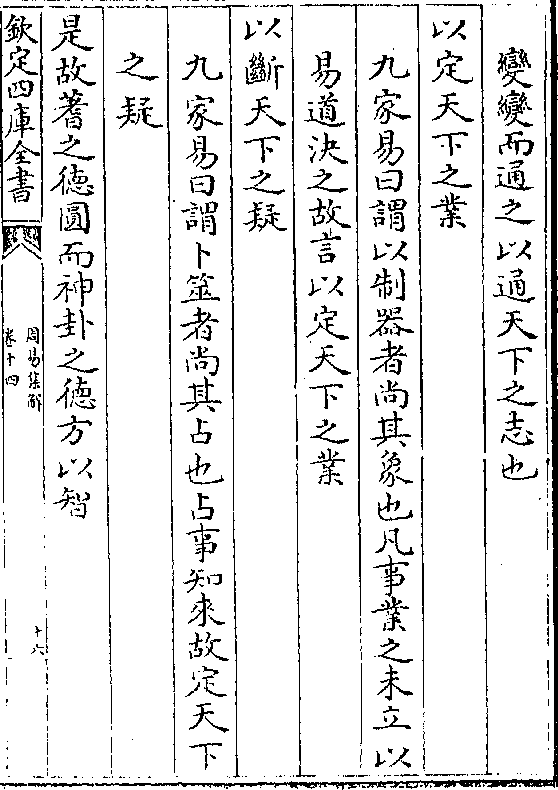 變變而通之以通天下之志也
以定天下之業
九家易曰謂以制器者尚其象也凡事業之未立以
易道決之故言以定天下之業
以斷天下之疑
九家易曰謂卜筮者尚其占也占事知來故定天下
之疑
是故蓍之德圓而神卦之德方以智
欽定四庫全書
周易集解
卷十四
十六